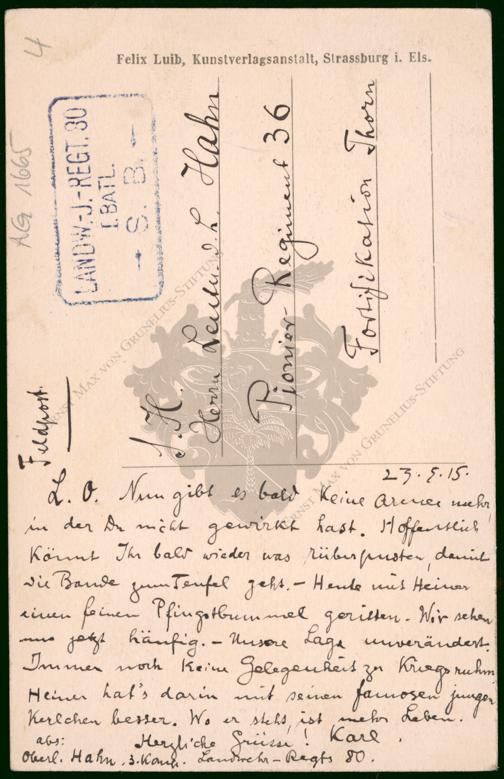 4
AG 1665
Felix Luib, Kunstverlagsanstalt, Strassburg i. Els.
LANDW.-J.-REGT. 80
I. BATL.
S. B.
Feldpost.
S. H.
Herrn Leutn. d. L. Hahn
Pionier-Regiment 36
Fortifikation Thorn
ERNST MAX VON GRUNELIUS-STIFTUNG
ERNST MAX VON GRUNELIUS-STIFTUNG
23.5.15.
L. O. Nun gibt es bald keine Armee mehr,
in der Du nicht gewirkt hast. Hoffentlich
könnt Ihr bald wieder was rüberpusten, damit
die Bande zum Teufel geht. – Heute mit Heiner
einen feinen Pfingstbummel geritten. Wir sehen
uns jetzt häufig. – Unsere Lage unverändert.
Immer noch keine Gelegenheit zu Kriegsruhm.
Heiner hat's darin mit seinen famosen jungen
Kerlchen besser. Wo er steht, ist mehr Leben.
Herzliche Grüsse! Karl.
abs:
Oberl. Hahn. 3. Komp. Landwehr-Regts 80.